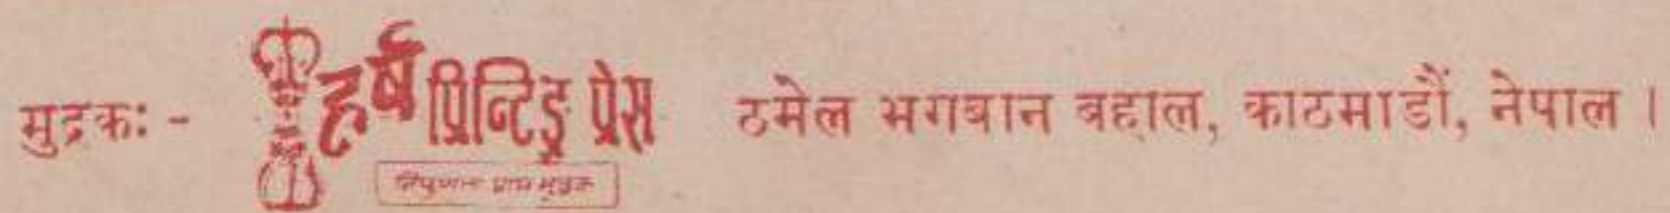 मुद्रकः - हर्ष प्रिन्टिङ्ग प्रेस ठमेल भगवान बहाल, काठमाडौं, नेपाल ।